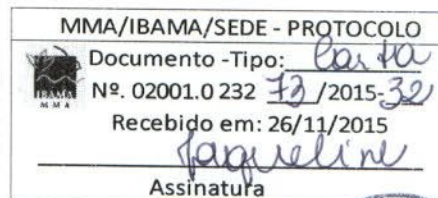 MMA/IBAMA/SEDE - PROTOCOLO
Documento -Tipo: Carta
Nº. 02001.0 232 73 /2015-32
Recebido em: 26/11/2015
Jaqueline
Assinatura
IBAMA
M M A